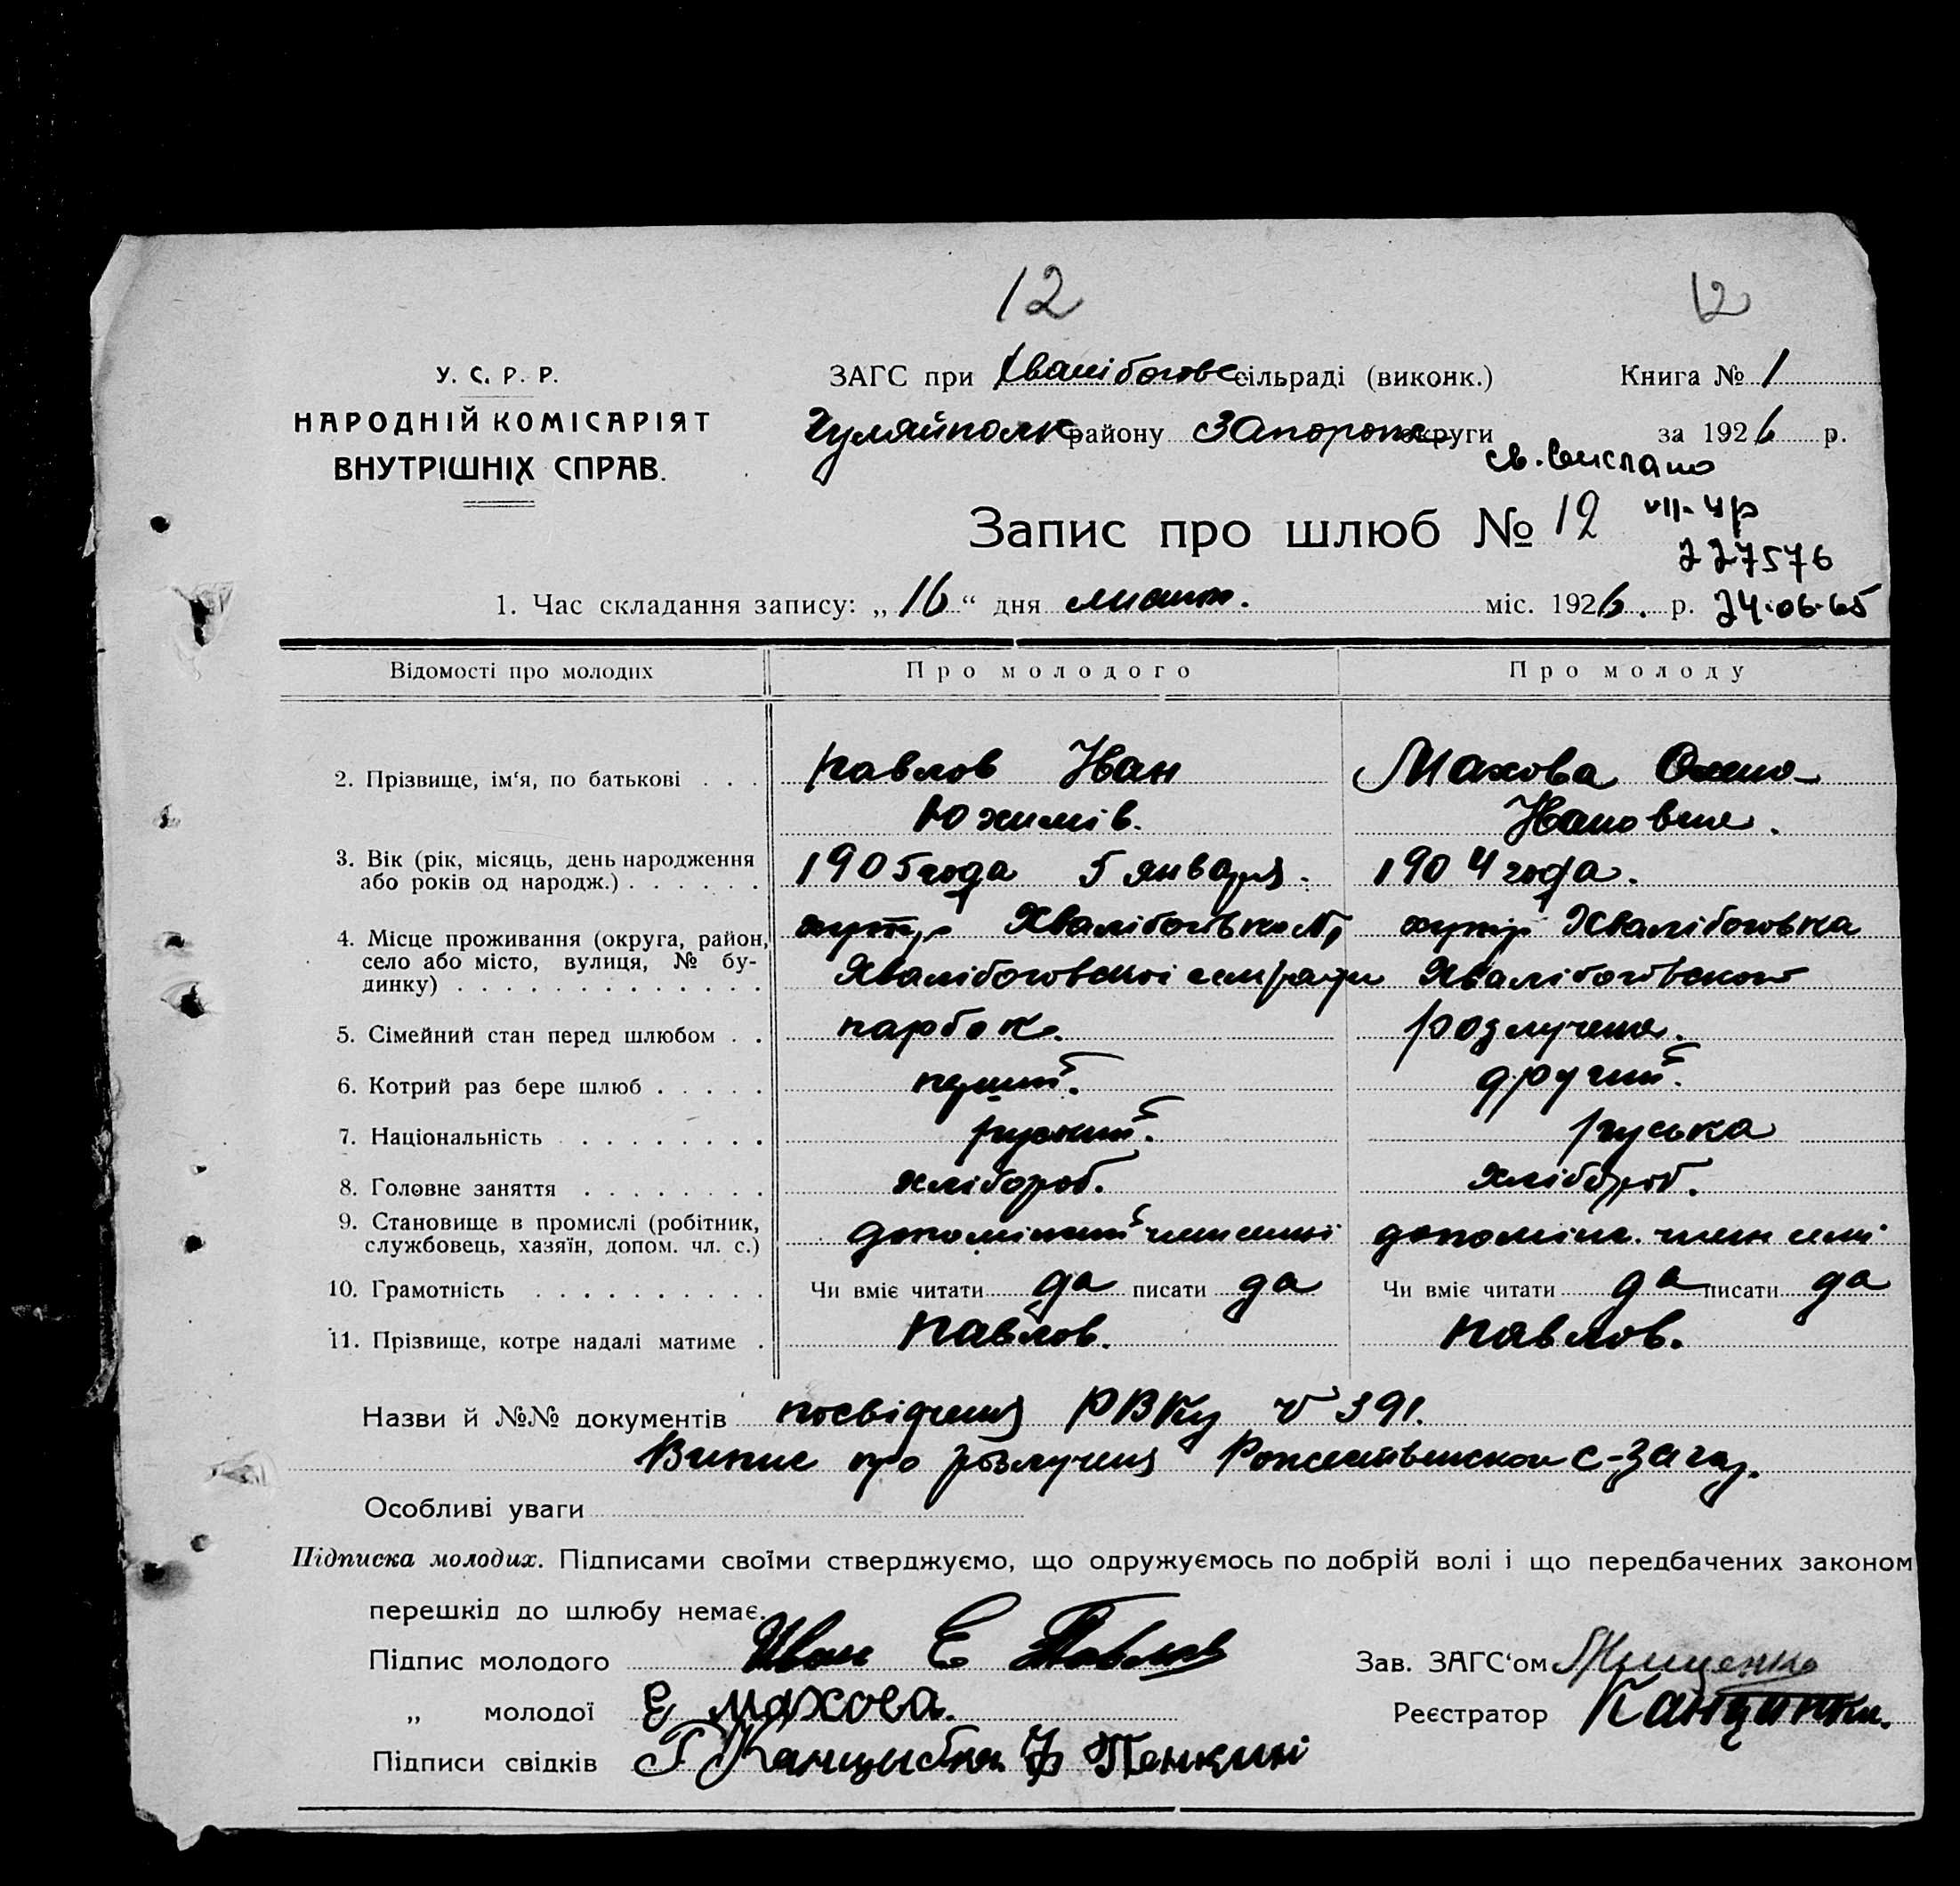 12 12
У. С. Р. Р.
НАРОДНІЙ КОМІСАРІЯТ
ВНУТРІШНІХ СПРАВ.
ЗАГС при Хвалібогове сільраді (виконк.) Книга № 1
Гуляйполк району Запорож округи за 1926 р.
св. выслано
Запис про шлюб № 12
VII-ЧР
227576
24.06.65
1. Час складання запису: „16“ дня листоп. міс. 1926. р.
Відомості про молодих Про молодого Про молоду
2. Прізвище, ім‘я, по батькові . . . Павлов Іван Махова Олена
Юхимів. Івановна.
3. Вік (рік, місяць, день народження
або років од народж.) . . . . . . 1905 года 5 января. 1904 года.
4. Місце проживання (округа, район,
село або місто, вулиця, № бу-
динку) . . . . . . . . . . . . .
хутір Хвалібогівка хутір Хвалібоговка
Хвалібоговскої сельради Хвалібогівской
5. Сімейний стан перед шлюбом . . парбок. розлучена.
6. Котрий раз бере шлюб . . . . . перший. другий.
7. Національність . . . . . . . . руський. руська
8. Головне заняття . . . . . . . . хлібороб. хлібороб.
9. Становище в промислі (робітник,
службовець, хазяїн, допом. чл. с.) член семі допоміж. член семі
10. Грамотність . . . . . . . . . . Чи вміє читати да писати да Чи вміє читати да писати да
11. Прізвище, котре надалі матиме . Павлов. Павлов.
Назви й №№ документів посвідчення РВКу № 391.
Випис про розлучення с-Загаз.
Особливі уваги
Підписка молодих. Підписами своїми стверджуємо, що одружуємось по добрій волі і що передбачених законом
перешкід до шлюбу немає.
Підпис молодого Иван Е Павлов Зав. ЗАГС‘ом Грищенко
„ молодої Е Махова. Реєстратор
Підписи свідків Г